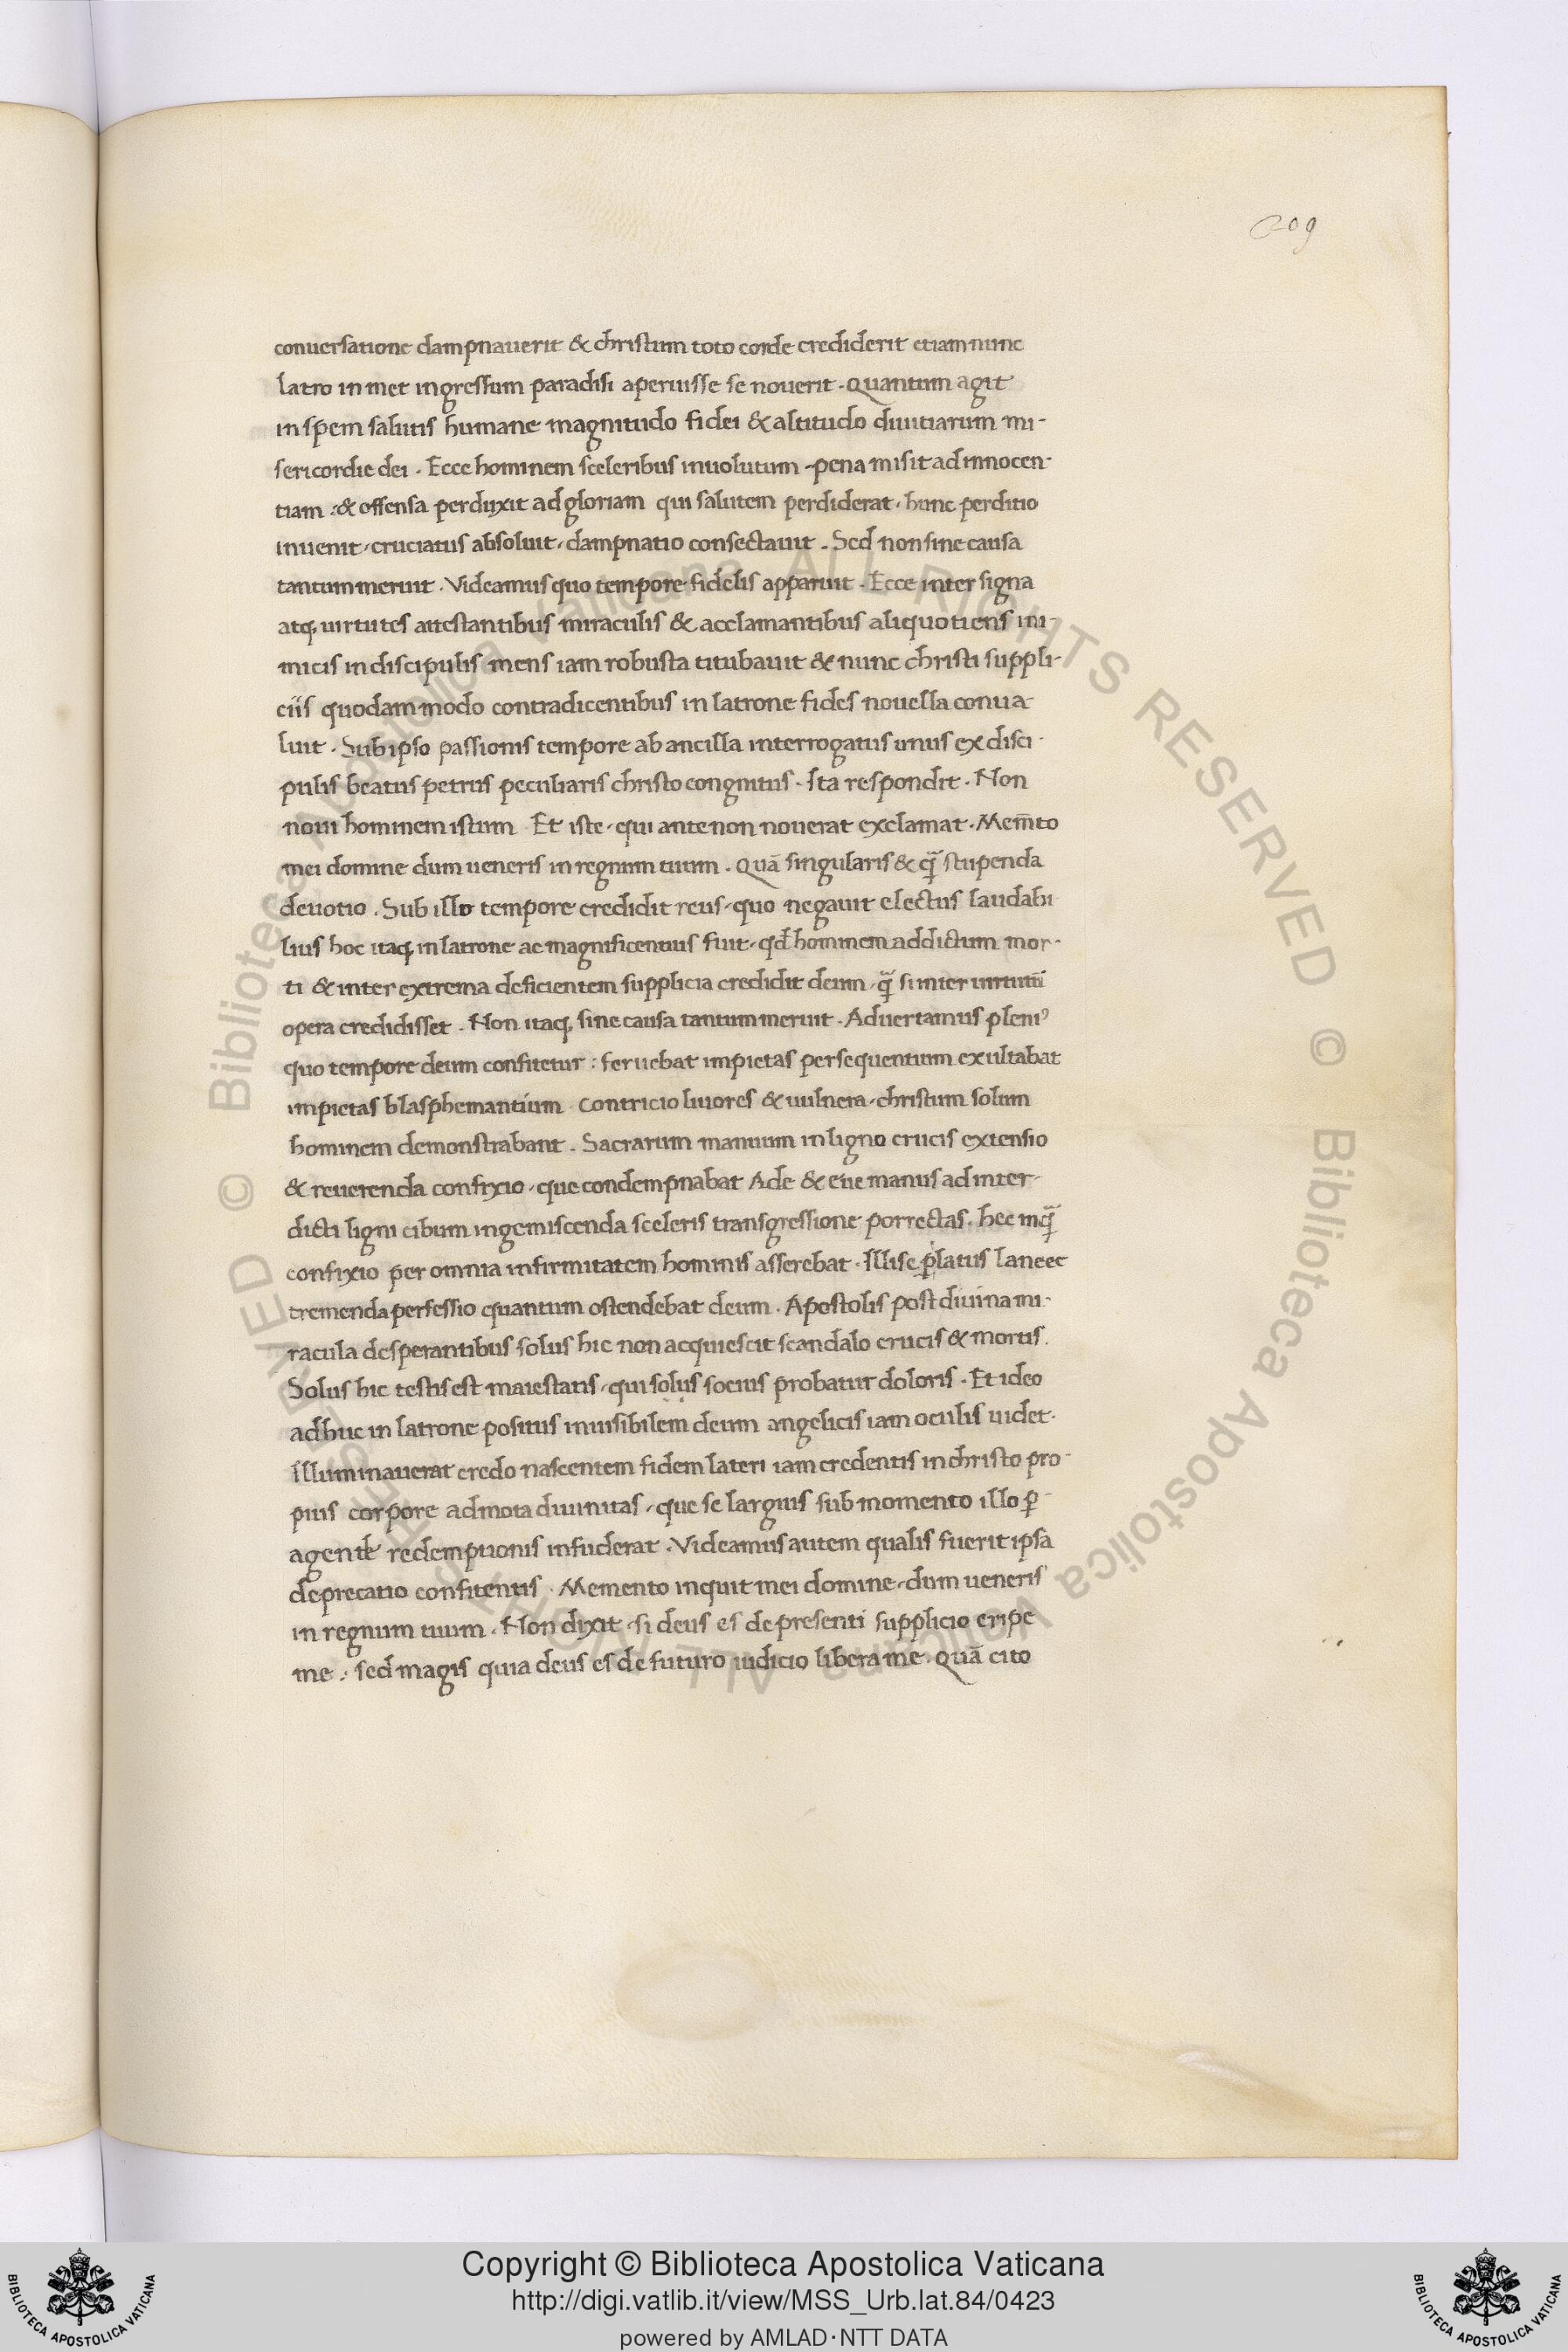 209
conuersatione dampnauerit & christum toto corde crediderit etiam nunc
latro in met ingressum paradisi aperuisse se nouerit . Quantum agit
in spem salutis humane magnitudo fidei & altitudo diuitiarum mi-
sericordie dei . Ecce hominem sceleribus inuolutum . pena misit ad innocen-
tiam : & offensa perduxit ad gloriam qui salutem perdiderat . hunc perditio
inuenit . cruciatus absoluit . dampnatio consectauit . Sed non sine causa
tantum meruit . Videamus quo tempore fidelis apparuit . Ecce inter signa
atq; uirtutes attestantibus miraculis & acclamantibus aliquotiens ini-
micis in discipulis mens iam robusta titubauit & nunc christi suppli-
ciis quodam modo contradicentibus in latrone fides nouella conua-
luit . Sub ipso passionis tempore ab ancilla interrogatus unus ex disci-
pulis beatus petrus peculiaris christo congnitus . Ita respondit . Non
noui hominem istum Et iste . qui ante non nouerat exclamat . Mem̄to
mei domine dum ueneris in regnum tuum . Quā singularis & q̄ stupenda
deuotio . Sub illo tempore credidit reus . quo negauit electus laudabi
lius hoc itaq; in latrone ac magnificentius fuit . qd̄ hominem addictum mor-
ti & inter extrema deficientem supplicia credidit deum . q̄ si inter uirtutū
opera credidisset . Non itaq; sine causa tantum meruit . Aduertamus pleniꝰ
quo tempore deum confitetur : feruebat impietas persequentium exultabat
impietas blasphemantium . contricio liuores & uulnera . christum solum
hominem demonstrabant . Sacrarum manuum in ligno crucis extensio
& reuerenda confixio . que condempnabat Ade & eue manus ad inter-
dicti ligni cibum ingemiscenda sceleris transgressione porrectas . hec inq̄
confixio per omnia infirmitatem hominis asserebat . Illi se p̱latus laneee
tremenda perfessio quantum ostendebat deum . Apostolis post diuina mi-
racula desperantibus solus hic non acquiescit scandalo crucis & mortis .
Solus hic testis est maiestatis . qui solus socius probatur doloris . Et ideo
adhuc in latrone positus inuisibilem deum angelicis iam oculis uidet .
Illuminauerat credo nascentem fidem lateri iam credentis in christo pro-
pius corpore admota diuinitas . que se largius sub momento illo ꝑ-
agente redemptionis infuderat . Videamus autem qualis fuerit ipsa
deprecatio confitentis . Memento inquit mei domine . dum ueneris
in regnum tuum . Non dixit . si deus es de presenti supplicio eripe
me : sed magis quia deus es de futuro iudicio libera me . Quā cito
© Biblioteca Apostolica Vaticana ALL RIGHTS RESERVED
© Biblioteca Apostolica Vaticana ALL RIGHTS RESERVED
Copyright © Biblioteca Apostolica Vaticana
http://digi.vatlib.it/view/MSS_Urb.lat.84/0423
powered by AMLAD·NTT DATA
BIBLIOTECA APOSTOLICA VATICANA
BIBLIOTECA APOSTOLICA VATICANA